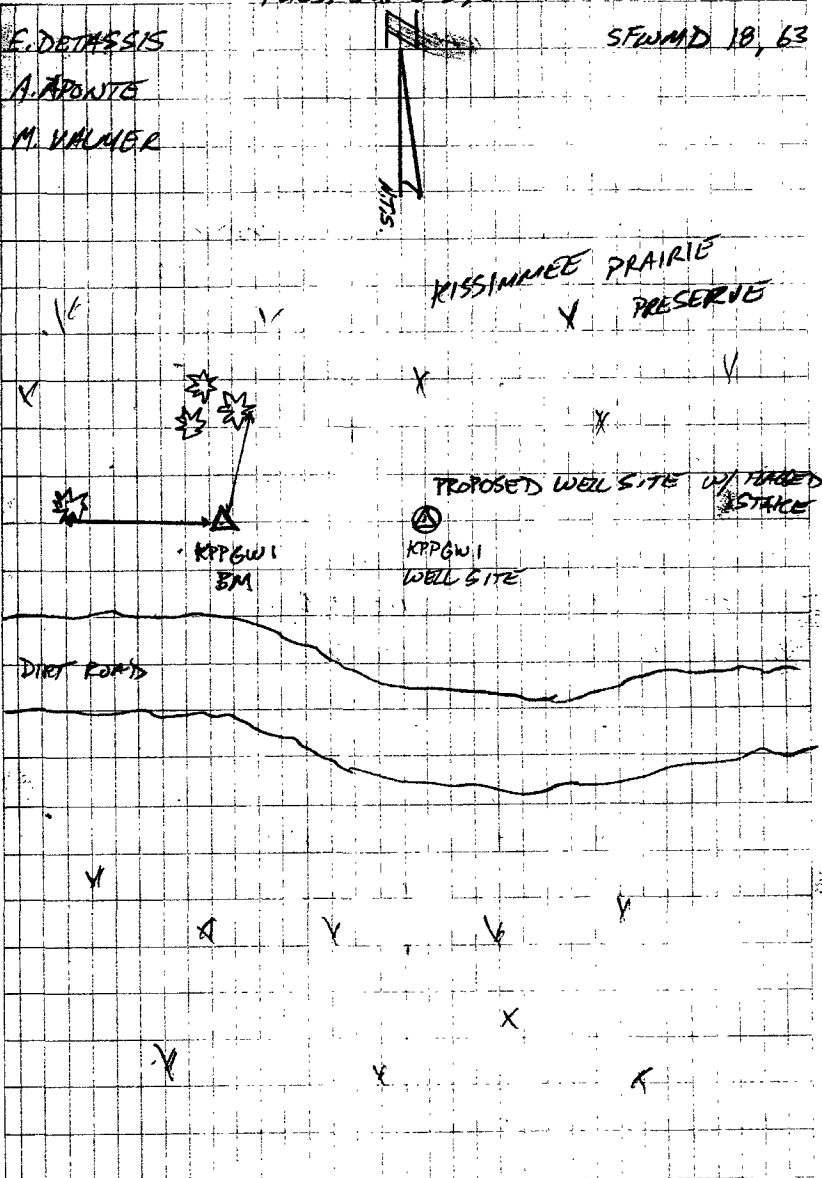 E. DETASSIS
SFWMD 18, 63
A. APONTE
M. VALMER
N.T.S.
KISSIMMEE PRAIRIE
PRESERVE
PROPOSED WELL SITE W/ FLAGED
STAKE
KPPGW1
BM
KPPGW1
WELL SITE
DIRT ROAD